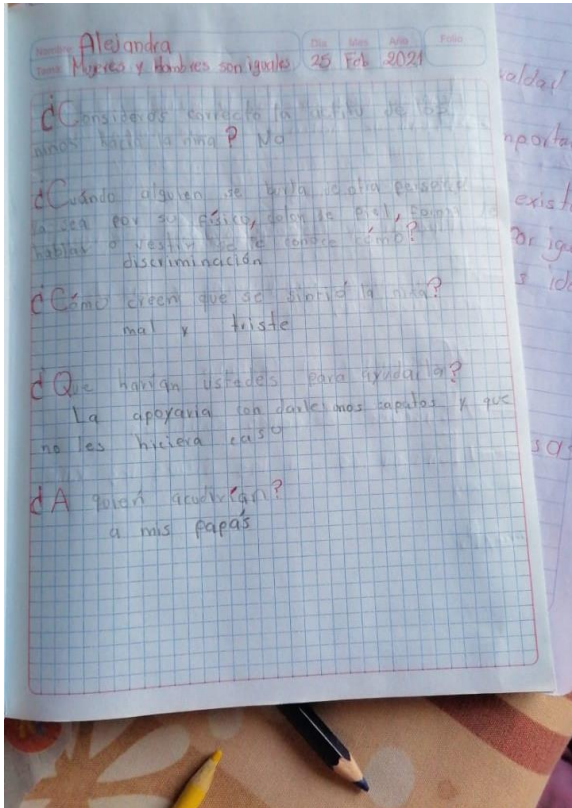 Nombre Alejandra Día Mes Año Folio
Tema Mujeres y Hombres son iguales 25 Feb 2021
¿Consideras correcto la actitud de los
niños hacia la niña? No
¿Cuándo alguien se burla de otra persona
ya sea por su físico, color de piel, forma de
hablar o vestir se le conoce cómo?
discriminación
¿Cómo creen que se sintió la niña?
mal y triste
¿Que harían ustedes para ayudarla?
La apoyaria con darle unos zapatos y que
no les hiciera caso
¿A quien acudirían?
a mis papás